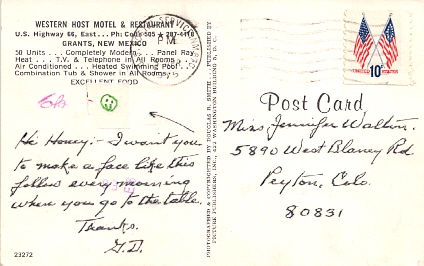 WESTERN HOST MOTEL & RESTAURANT
U.S. Highway 66, East... Ph: Code 505 * 287-4418
GRANTS, NEW MEXICO
50 Units . . . Completely Modern . . . Panel Ray
Heat . . . T.V. & Telephone in All Rooms . . .
Air Conditioned . . . Heated Swimming Pool . . .
Combination Tub & Shower in All Rooms.
EXCELLENT FOOD
Hi Honey:- I want you
to make a face like this
fellow every morning
when you go to the table.
Thanks.
G.D.
23272
PHOTOGRAPHED & COPYRIGHTED BY DOUGLAS D. SMITH
PICTURE PUBLISHERS, INC., 222 WASHINGTON BUILDING
PUBLISHED BY
SERVICE
PM
10¢
Post Card
Miss Jennifer Walton.
5890 West Blaney Rd.
Peyton, Colo.
80831